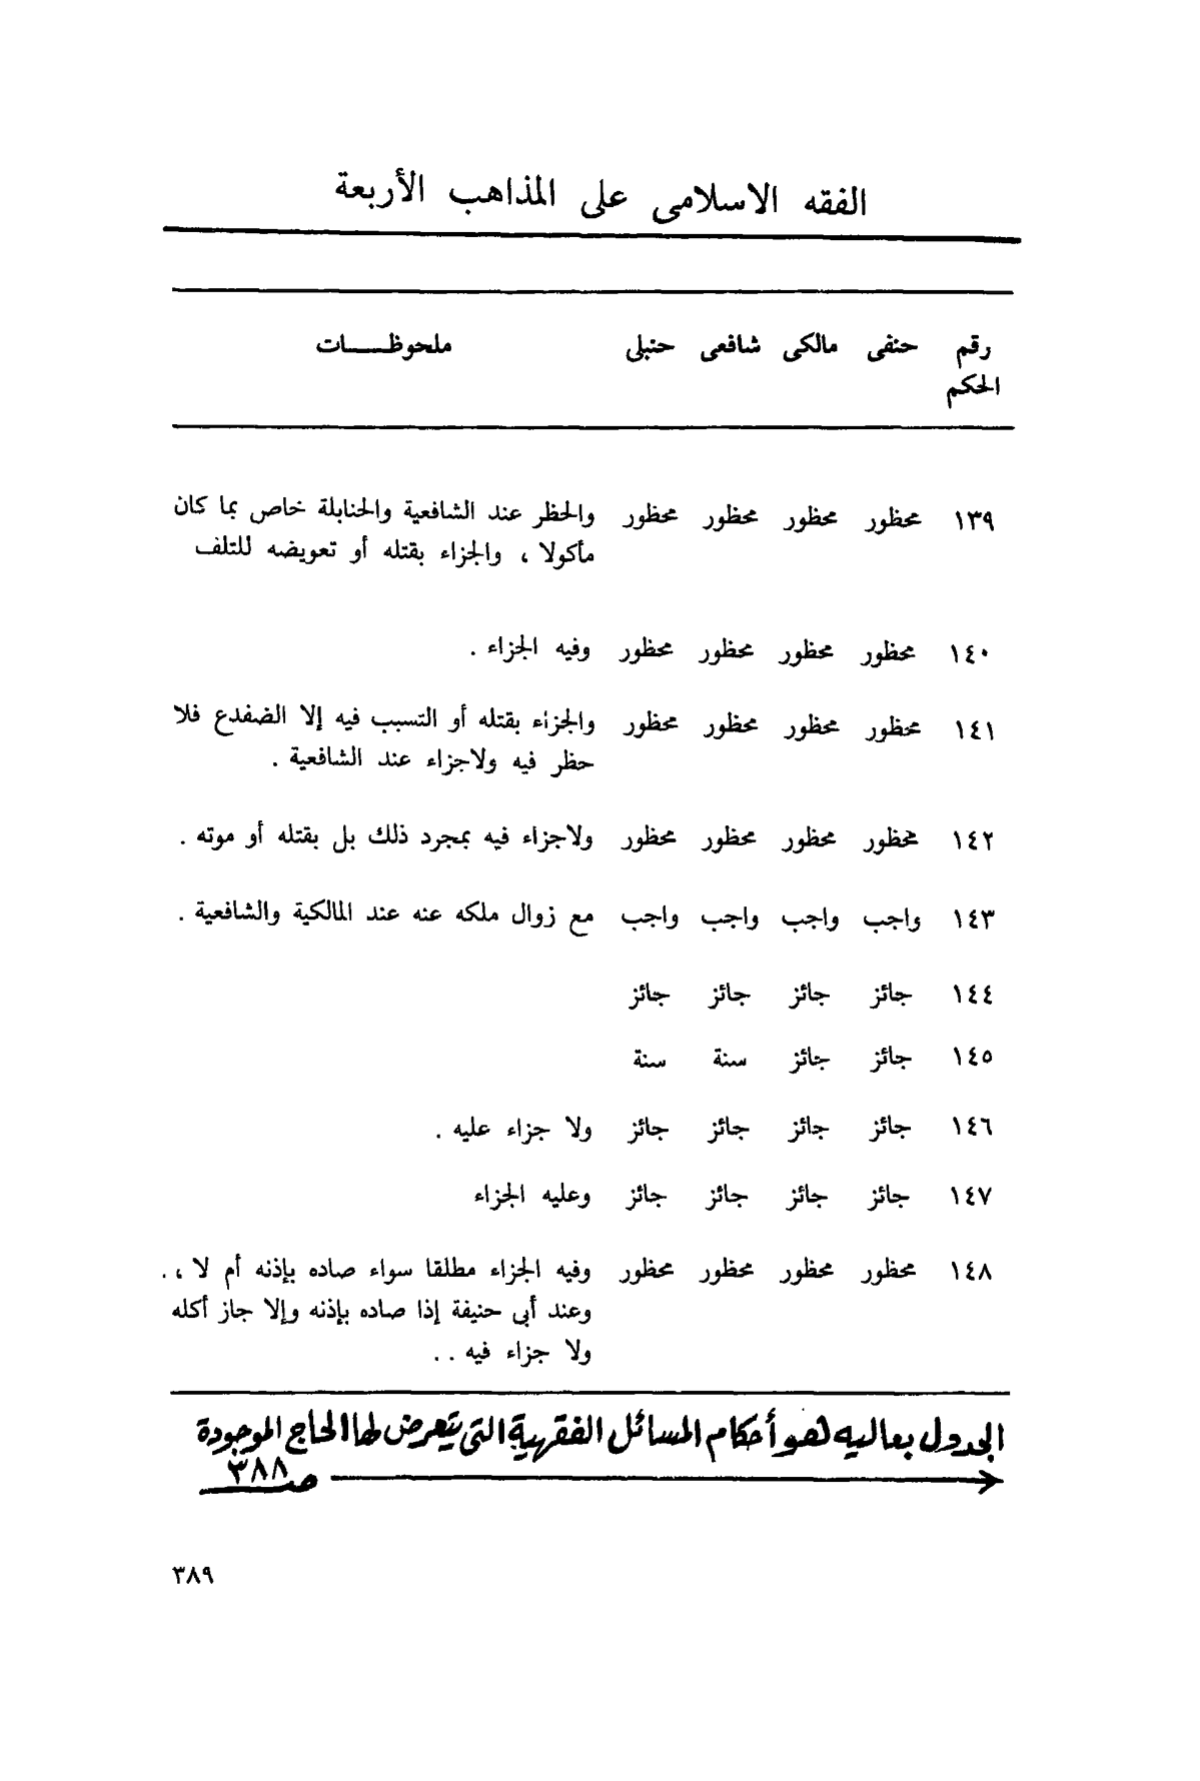 الفقه الاسلامى على المذاهب الأربعة
رقم حنفى مالكى شافعى حنبلى ملحوظـــــات
الحكم
١٣٩ محظور محظور محظور محظور والحظر عند الشافعية والحنابلة خاص بما كان
مأكولا ، والجزاء بقتله أو تعويضه للتلف
١٤٠ محظور محظور محظور محظور وفيه الجزاء .
١٤١ محظور محظور محظور محظور والجزاء بقتله أو التسبب فيه إلا الضفدع فلا
حظر فيه ولاجزاء عند الشافعية .
١٤٢ محظور محظور محظور محظور ولاجزاء فيه بمجرد ذلك بل بقتله أو موته .
١٤٣ واجب واجب واجب واجب مع زوال ملكه عنه عند المالكية والشافعية .
١٤٤ جائز جائز جائز جائز
١٤٥ جائز جائز سنة سنة
١٤٦ جائز جائز جائز جائز ولا جزاء عليه .
١٤٧ جائز جائز جائز جائز وعليه الجزاء
١٤٨ محظور محظور محظور محظور وفيه الجزاء مطلقا سواء صاده بإذنه أم لا ، .
وعند أبى حنيفة إذا صاده بإذنه وإلا جاز أكله
ولا جزاء فيه . .
الجدول بعاليه هو أحكام المسائل الفقهية التى يتعرض لها الحاج الموجودة
صـ ٣٨٨
٣٨٩